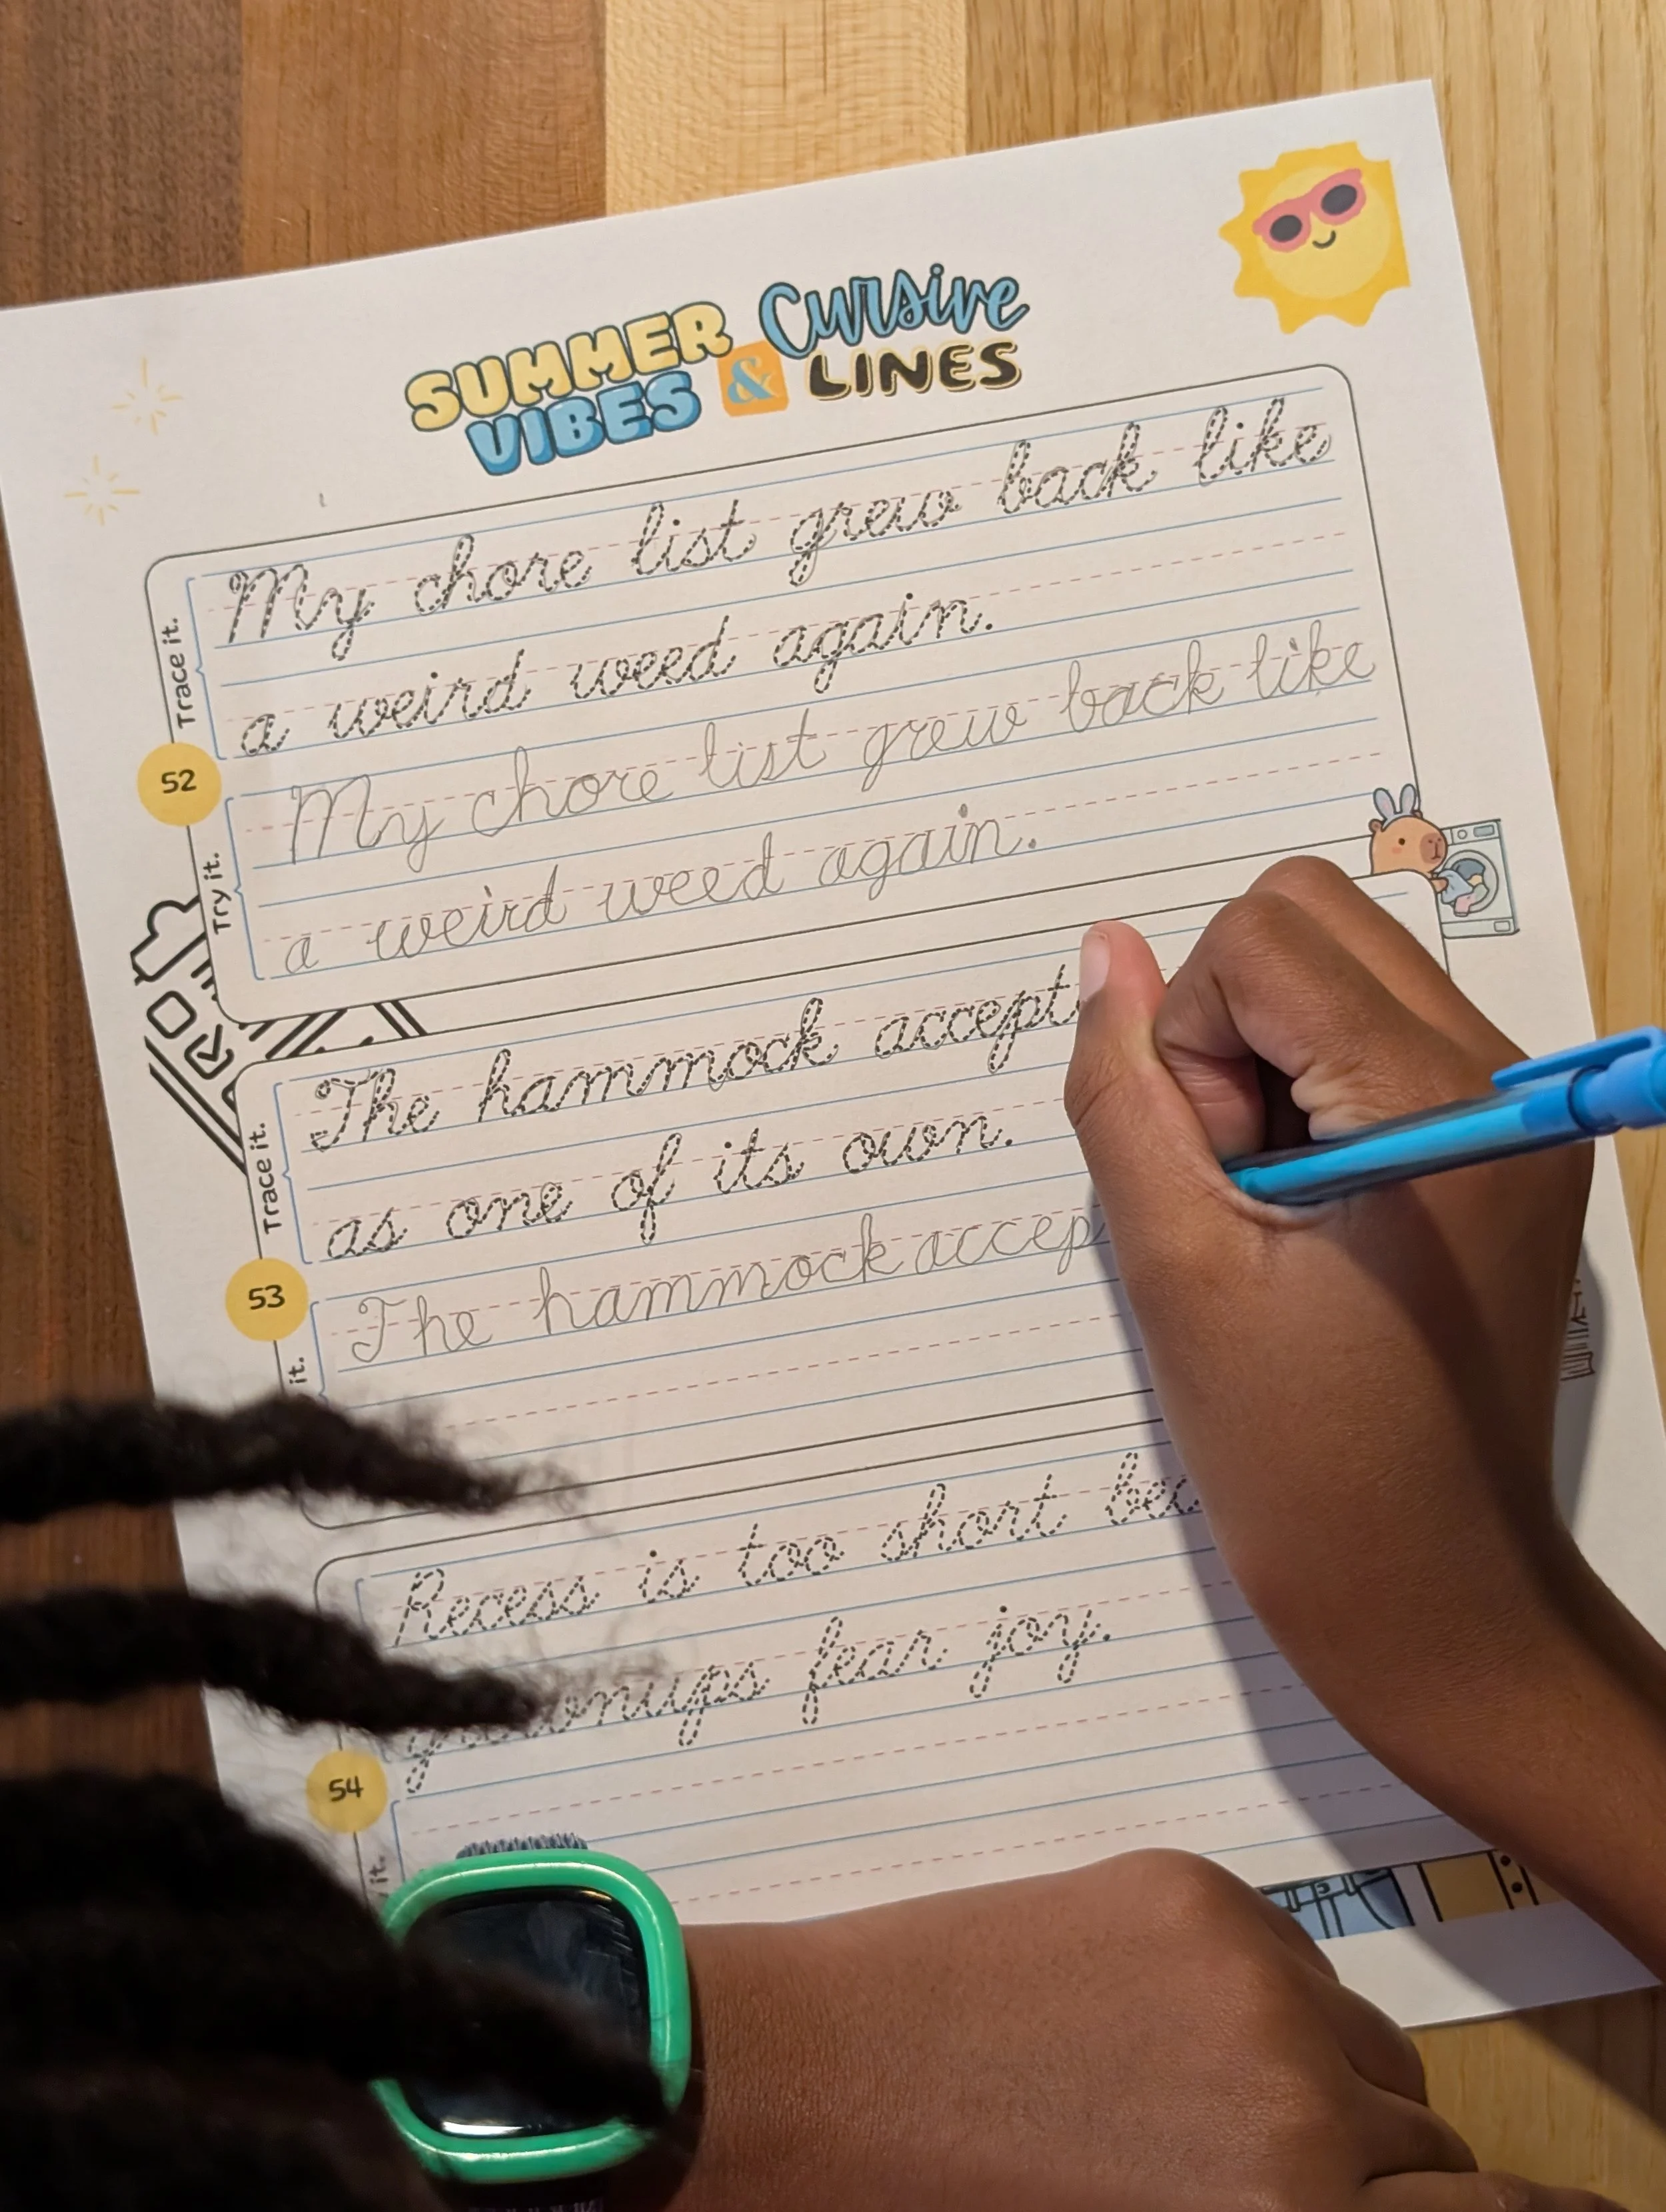 SUMMER VIBES & Cursive LINES
Trace it.
My chore list grew back like
a weird weed again.
52
Try it.
My chore list grew back like
a weird weed again.
Trace it.
The hammock
as one of its own.
53
it.
The hammock
Recess is too short
fear joy.
54